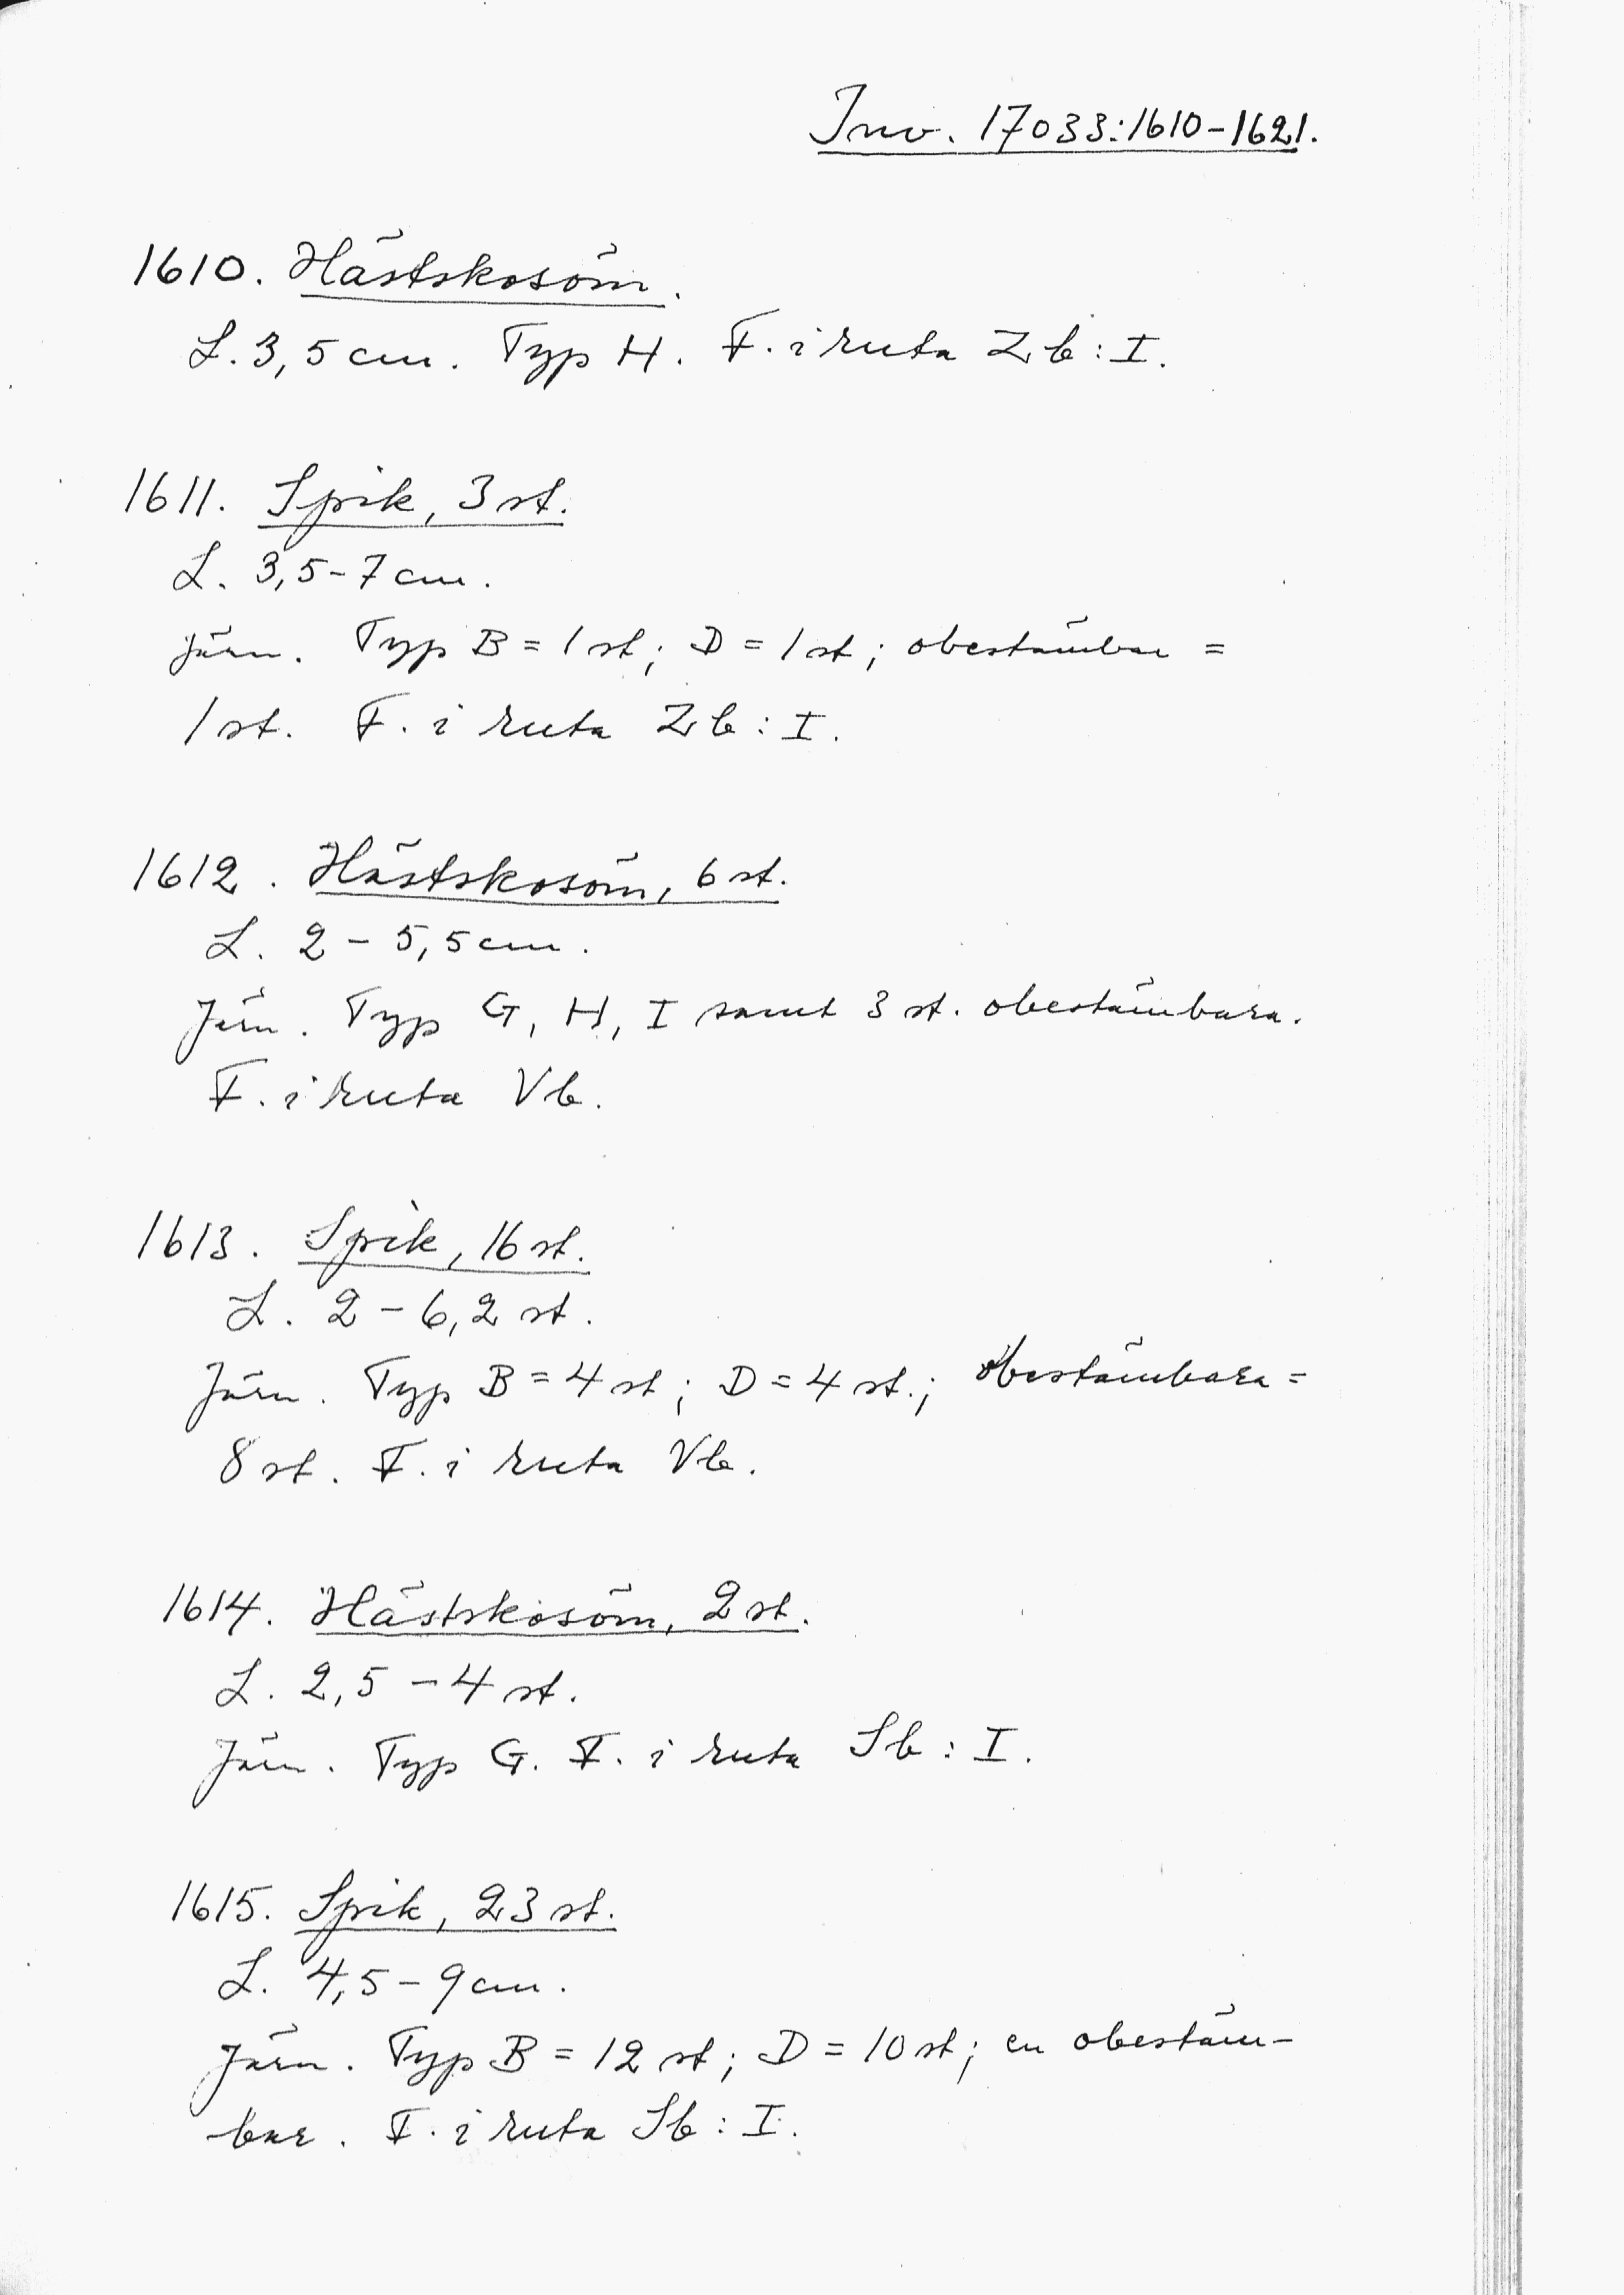 Inv. 17033:1610-1621.
1610. Hästskosöm.
L. 3,5 cm. Typ H. F. i ruta Zb: I.
1611. Spik, 3 st.
L. 3,5-7 cm.
Järn. Typ B = 1 st; D = 1 st; obestämbar =
1 st. F. i ruta Zb: I.
1612. Hästskosöm, 6 st.
L. 2 - 5,5 cm.
Järn. Typ G, H, I samt 3 st. obestämbara.
F. i ruta Vb.
1613. Spik, 16 st.
L. 2 - 6,2 st.
Järn. Typ B = 4 st; D = 4 st.; obestämbara =
8 st. F. i ruta Vb.
1614. Hästskosöm, 2 st.
L. 2,5 - 4 st.
Järn. Typ G. F. i ruta Sb: I.
1615. Spik, 23 st.
L. 4,5 - 9 cm.
Järn. Typ B = 12 st; D = 10 st; en obestäm-
bar. F. i ruta Sb: I.